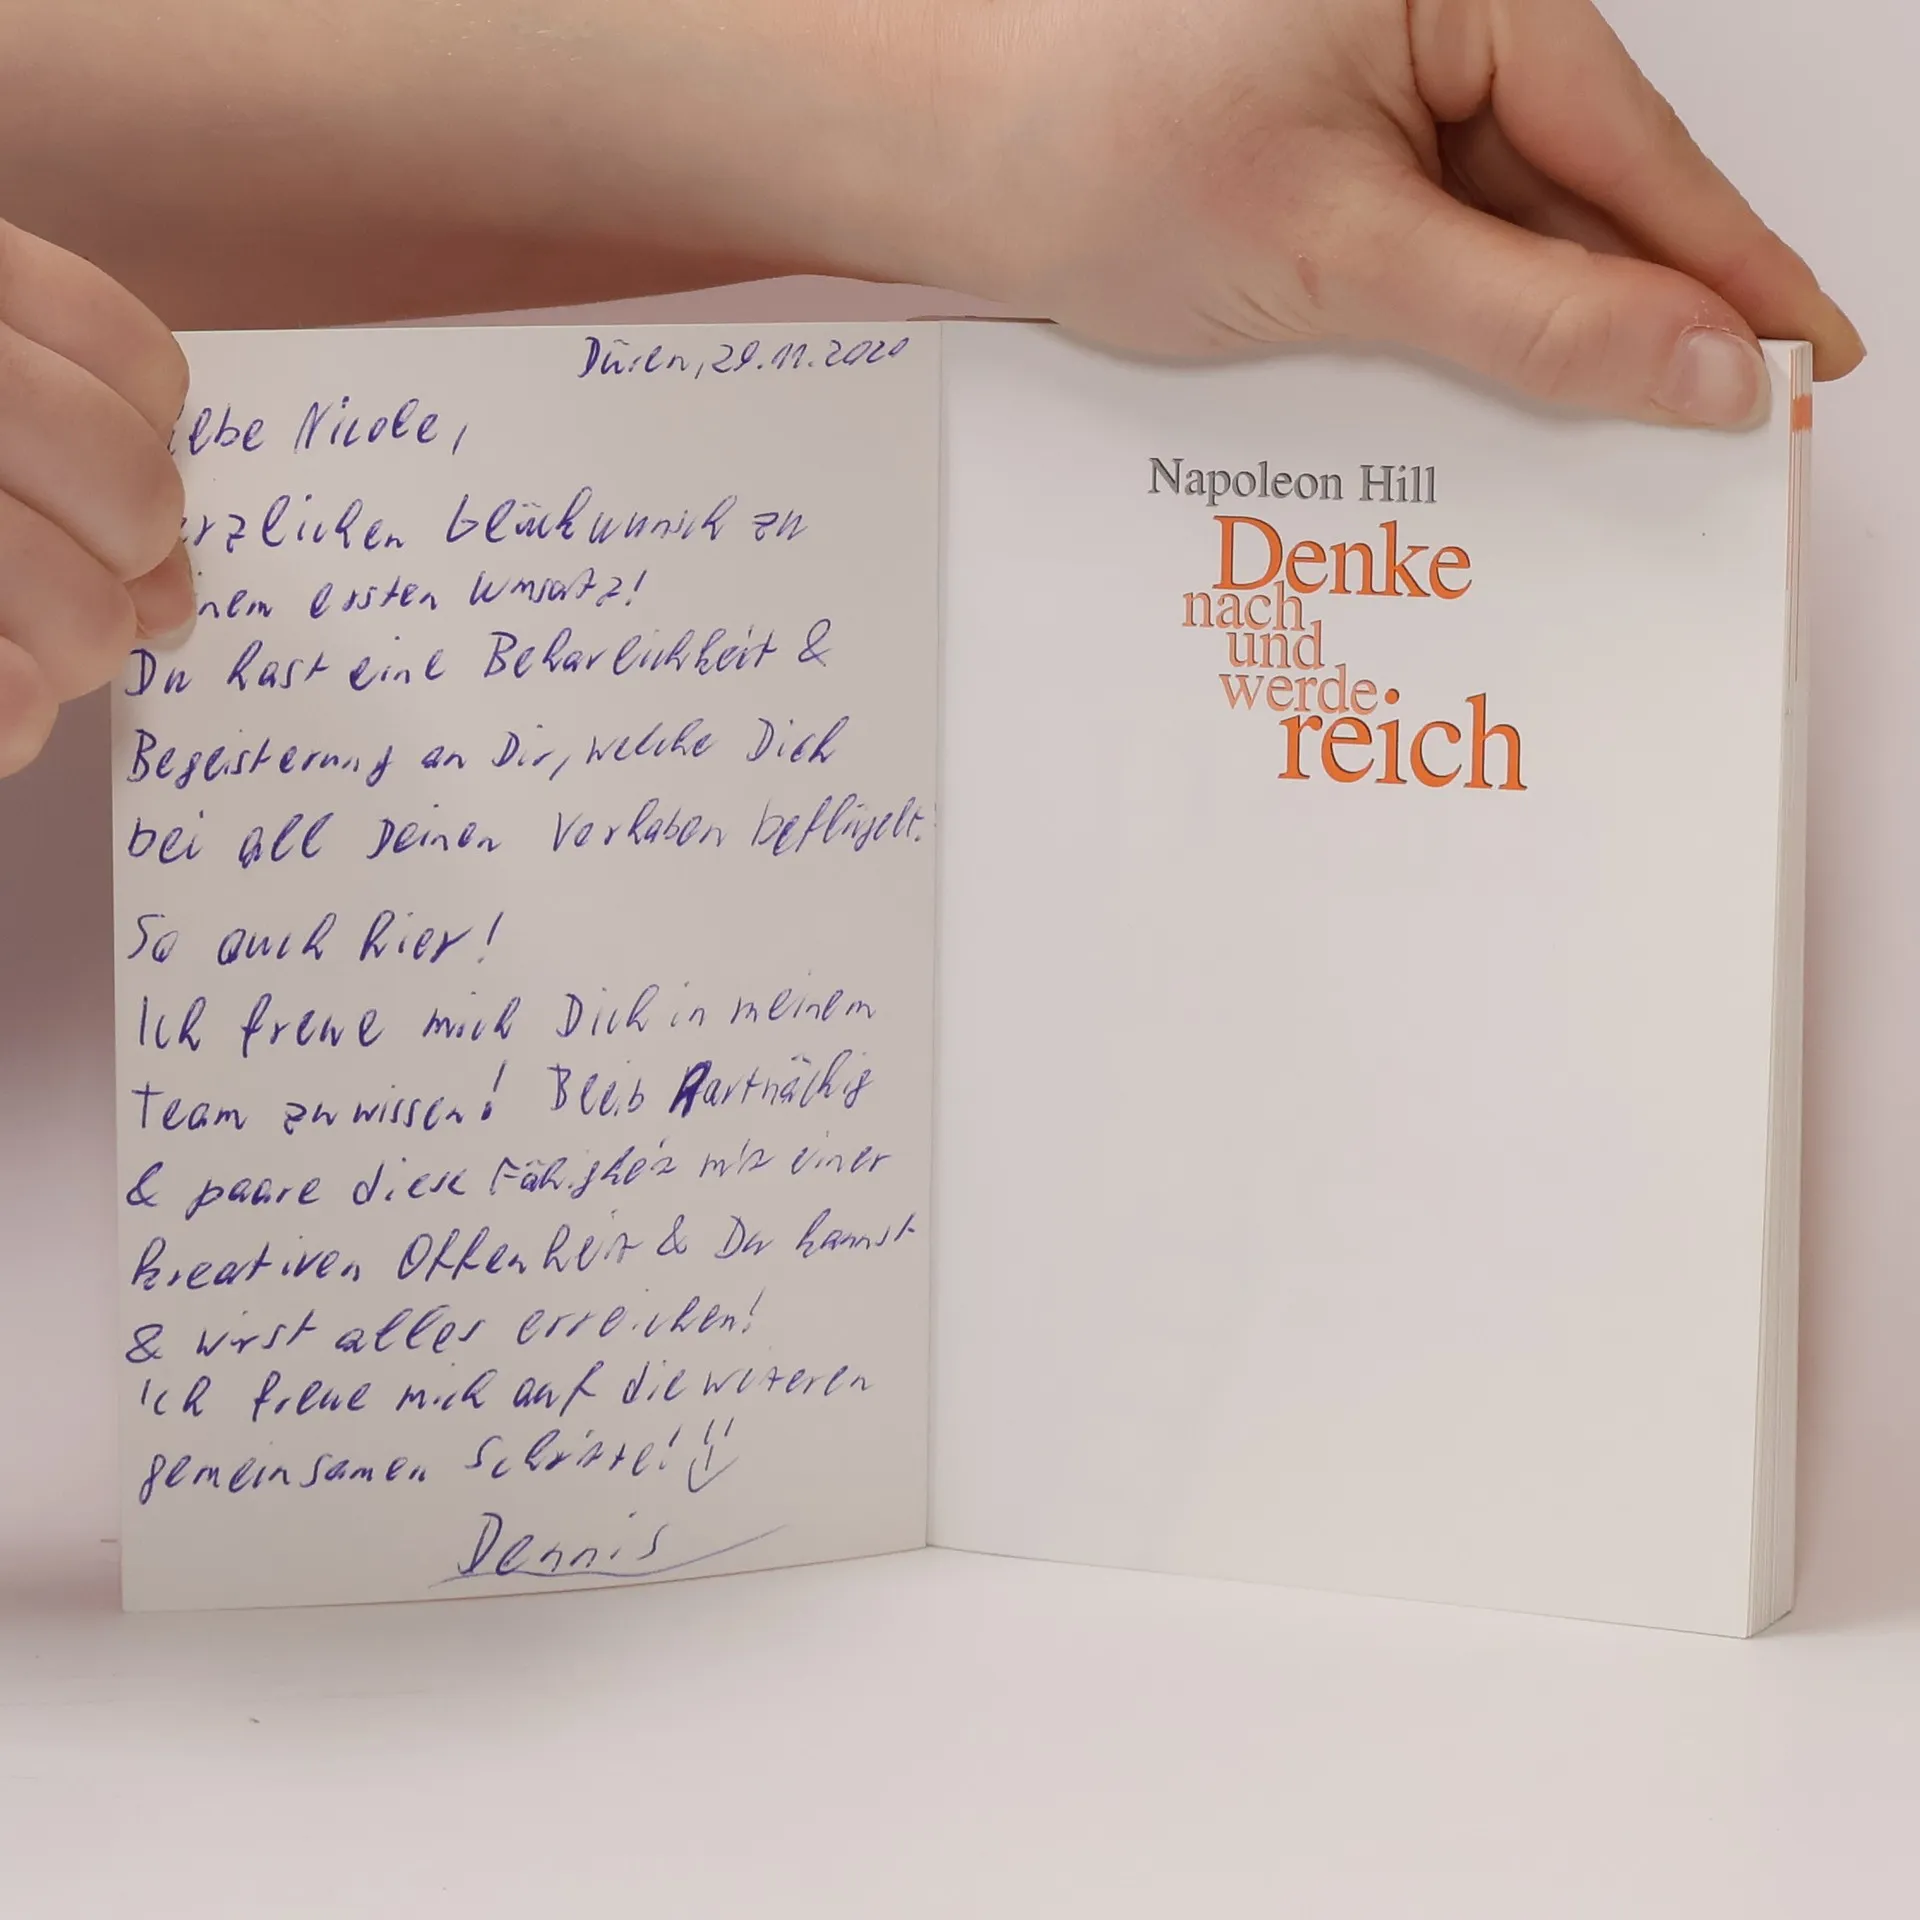 Düren, 29.11.2020
iebe Nicole,
rzlichen Glückwunsch zu
inem ersten Umsatz!
Du hast eine Beharlichkeit &
Begeisterung an Dir, welche Dich
bei all Deinen Vorhaben beflügelt!
So auch hier!
Ich freue mich Dich in meinem
Team zu wissen! Bleib hartnäckig
& paare diese Fähigkeit mit einer
kreativen Offenheit & Du kannst
& wirst alles erreichen!
Ich freue mich auf die weiteren
gemeinsamen Schritte!
Dennis
Napoleon Hill
Denke
nach
und
werde
reich